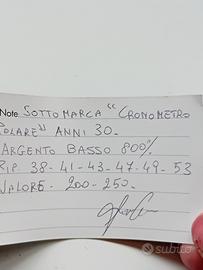 Note SOTTOMARCA "CRONOMETRO
POLARE" ANNI 30-
ARGENTO BASSO 800%
RIP. 38-41-43-47-49-53
VALORE - 200-250-
subito